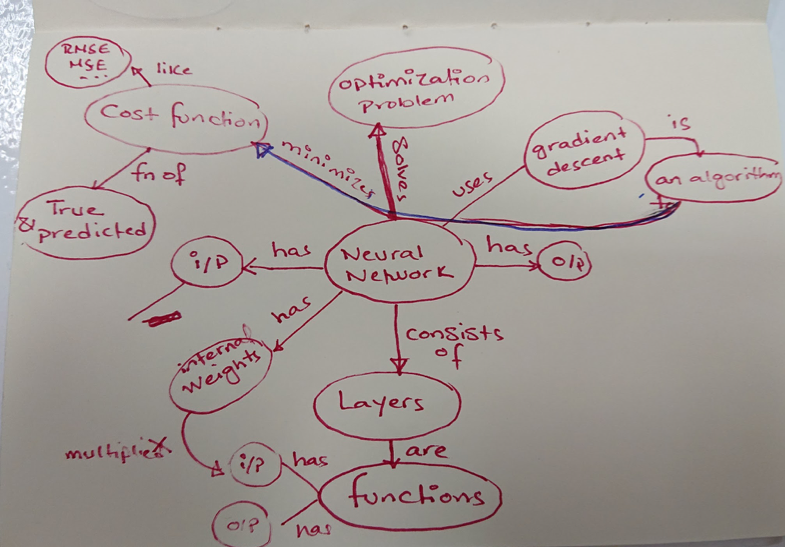 RMSE
MSE
...
like
Cost function
optimization
problem
minimizes
solves
uses
gradient
descent
is
an algorithm
to
fn of
True
& predicted
i/P
has
Neural
Network
has
O/P
has
internal
weights
consists
of
Layers
multiplies
i/P
has
are
functions
O/P
has